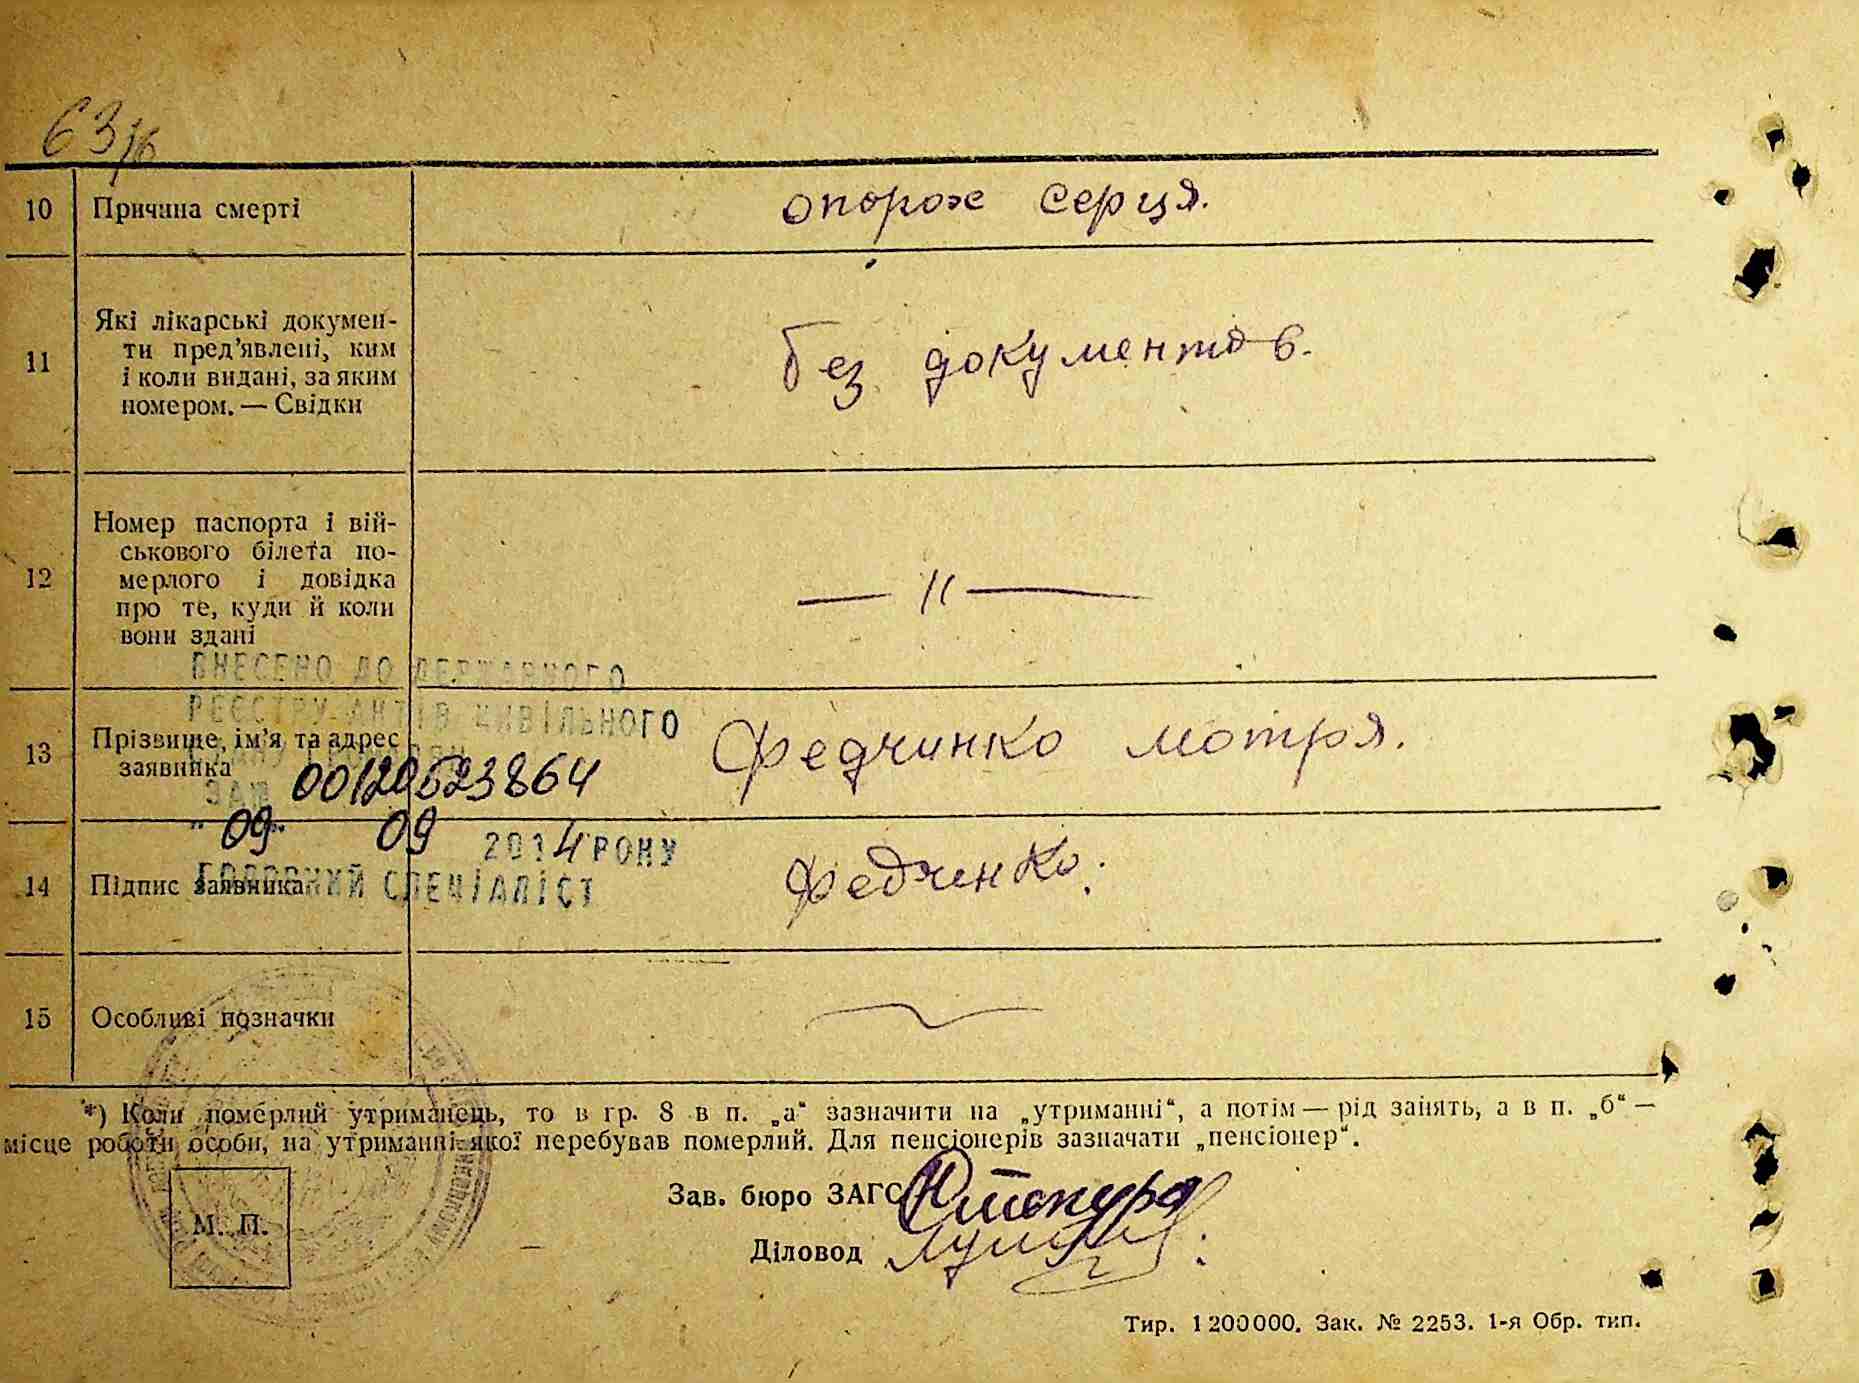 63
10 Причина смерті опорож серця.
11 Які лікарські докумен-
ти пред'явлені, ким
і коли видані, за яким
номером. — Свідки
без документів.
12 Номер паспорта і вій-
ськового білета по-
мерлого і довідка
про те, куди й коли
вони здані
— 〃 —
ВНЕСЕНО ДО ДЕРЖАВНОГО
РЕЄСТРУ АКТІВ ЦИВІЛЬНОГО
13 Прізвище, ім'я та адрес
заявника
Федчинко мотря.
ЗА № 00120523864
"09" 09 2014 РОКУ
ГОЛОВНИЙ СПЕЦІАЛІСТ
14 Підпис заявника Федченко.
15 Особливі позначки
*) Коли померлий утриманець, то в гр. 8 в п. „а“ зазначити на „утриманні“, а потім — рід занять, а в п. „б“ —
місце роботи особи, на утриманні якої перебував померлий. Для пенсіонерів зазначати „пенсіонер“.
Зав. бюро ЗАГС
Діловод
М. П.
Тир. 1200000. Зак. № 2253. 1-я Обр. тип.